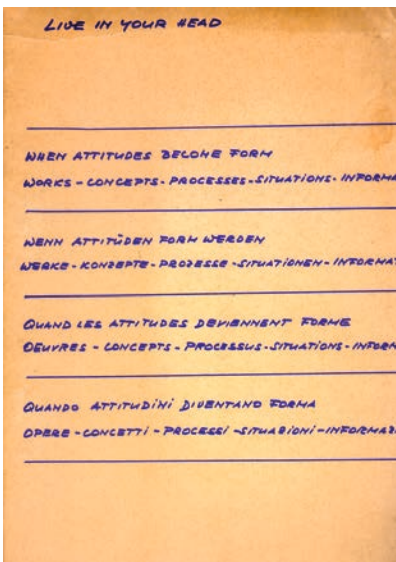 LIVE IN YOUR HEAD
WHEN ATTITUDES BECOME FORM
WORKS - CONCEPTS - PROCESSES - SITUATIONS - INFORMA
WENN ATTITÜDEN FORM WERDEN
WERKE - KONZEPTE - PROZESSE - SITUATIONEN - INFORMAT
QUAND LES ATTITUDES DEVIENNENT FORME
OEUVRES - CONCEPTS - PROCESSUS - SITUATIONS - INFORM
QUANDO ATTITUDINI DIVENTANO FORMA
OPERE - CONCETTI - PROCESSI - SITUAZIONI - INFORMAZ